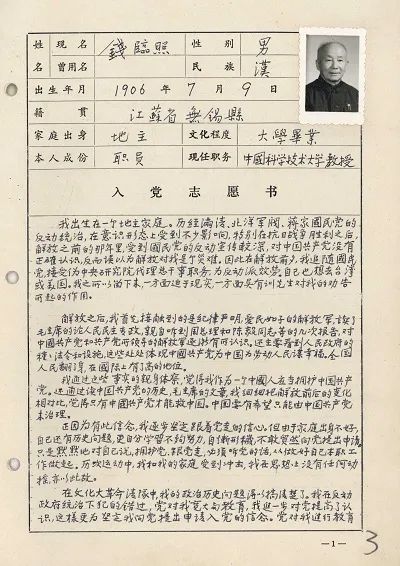 姓 现名 錢臨照 性别 男
名 曾用名 民族 漢
出生年月 1906年7月9日
籍贯 江蘇省無锡縣
家庭出身 地主 文化程度 大學畢業
本人成份 职员 现任职务 中國科学技术大学教授
入党志愿书
我出生在一个地主家庭。历经满清、北洋軍阀、蒋家國民党的
反动統治,在意识形态上受到不少影响,特别在抗日战争胜利之后,
解放之前的那年里,受到國民党的反动宣传較深,对中国共产党没有
正確认识,反而误以为解放对我是个灾难。因此在解放前夕,我追随國民
党,接受伪中央研究院代理总干事职务,为反动派效劳,自己也想去台湾
或美国。我之所以留下来,一方面迫于现实,一方面吴有训先生对我的劝告
所起的作用。
解放之后,我首先接触到的是纪律严明、爱民如子的解放军,读了
毛主席的论人民民主专政,亲自听到周总理和陈毅同志等的几次报告,对
中國共产党和共产党所领导的解放軍逐渐有所认识。还主要看到人民政府的
政法令和设施,这些处处体现中國共产党为中国为劳动人民谋幸福,全国
人民翻了身,在國际上有了高的地位。
我通过这些事实的親身体察,觉得我作为一个中國人应当拥护中国共产
党。还通过读中国共产党的历史,毛主席的文章,我细细把解放前后的变化
相对比,觉得只有中國共产党才能救中国。中国要有希望只能由中國共产党
来治理。
正因为有此信念,我逐步坚定跟着党走的信心。但由于家庭出身不好,
自己还有历史问题,更自分学习不够努力,自惭形秽,不敢贸然向党提出申请,
只是默默地对自己说,拥护党,跟党走,必须听党的话,从做好自己本职工
作做起。历次运动中,我和我的家庭受到冲击,我在思想上没有任何动
搖,亦以此故。
在文化大革命清隊中,我的政治历史问题得以搞清楚了。我在反动
政府统治下犯的错过,党对我宽大和教育,我进一步对党提高了认
识,这样更为坚定我向党提出申请入党的信念。党对我进行教育
—1—
3